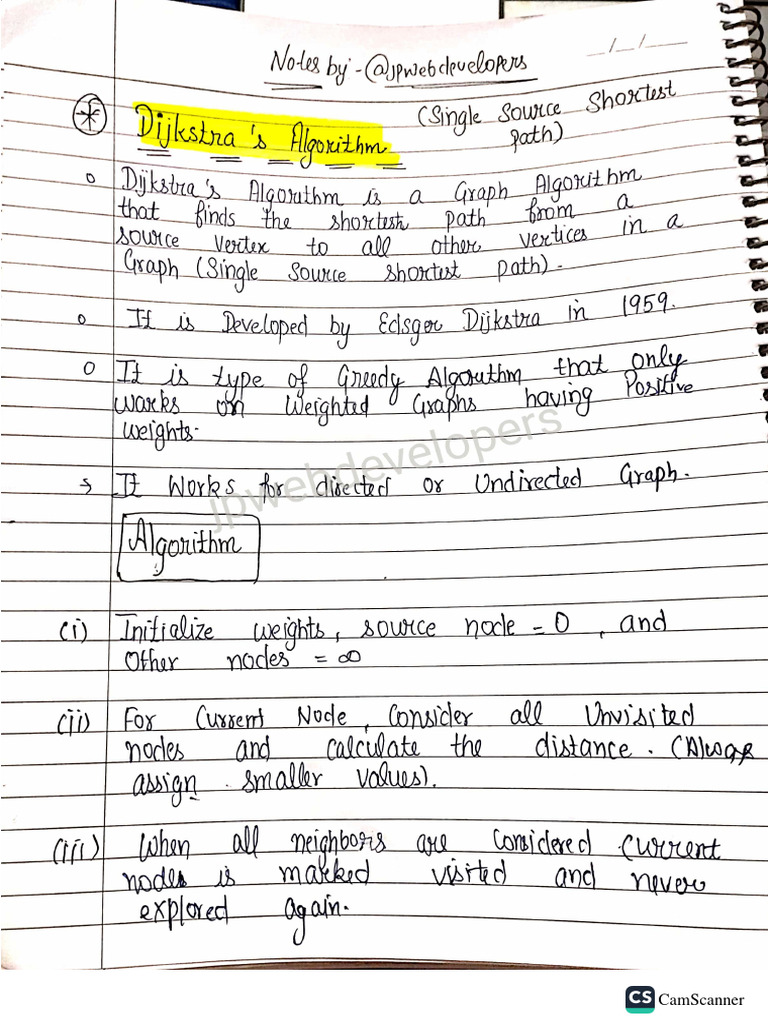 Notes by - @jpwebdevelopers
__/__/____
Dijkstra's Algorithm (Single Source Shortest
Path)
o Dijkstra's Algorithm is a Graph Algorithm
that finds the shortest path from a
source vertex to all other vertices in a
Graph (Single Source shortest path).
o It is Developed by Edsger Dijkstra in 1959.
o It is type of Greedy Algorithm that only
works on Weighted Graphs having Positive
weights.
→ It Works for directed or Undirected Graph.
jpwebdevelopers
Algorithm
(i) Initialize weights, source node = 0, and
Other nodes = ∞
(ii) For Current Node, Consider all Unvisited
nodes and calculate the distance. (Always
assign smaller values).
(iii) When all neighbors are Considered current
nodes is marked visited and never
explored again.
CS CamScanner